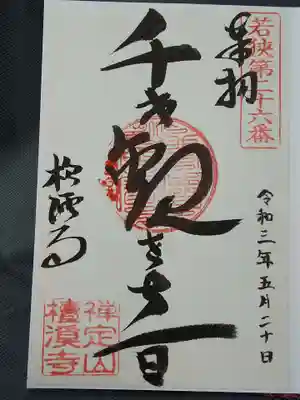 若狭第二十六番
奉拝
令和三年五月二十日
千手観世音
檀渓寺
禅定山
檀溪寺